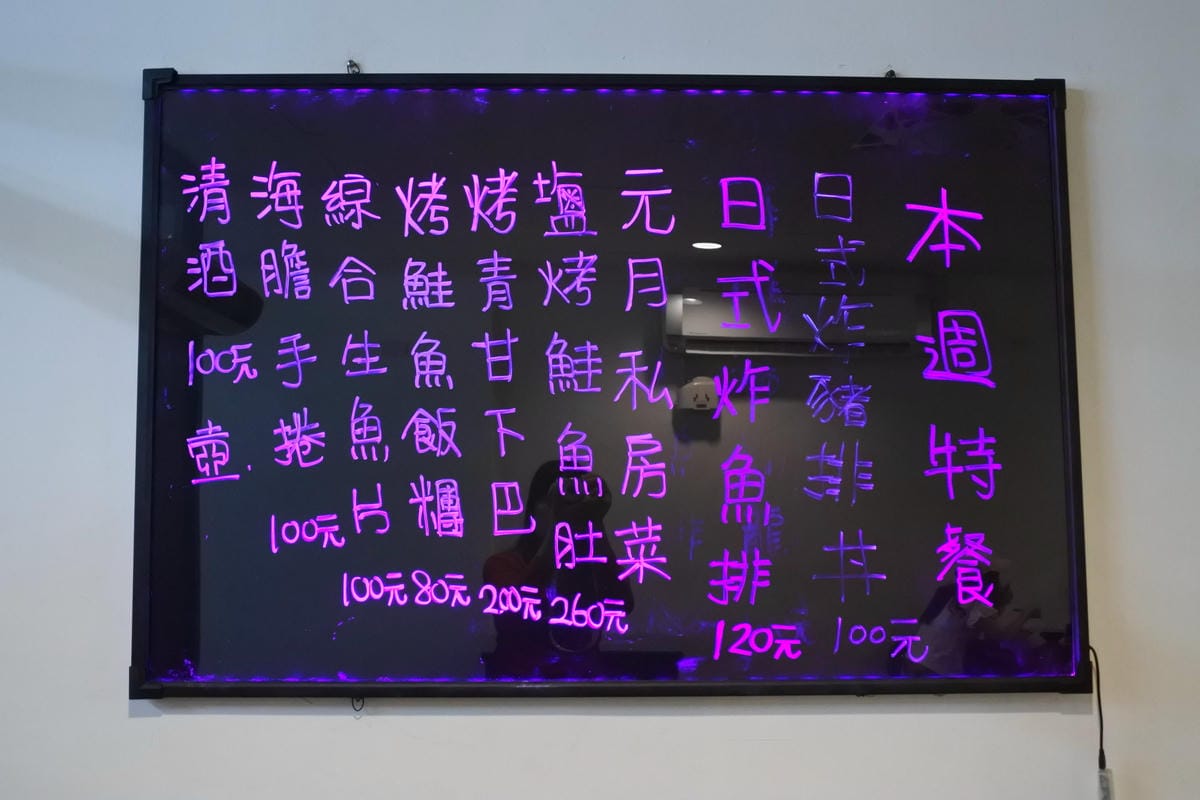 本週特餐
日式炸豬排丼 100元
日式炸魚排 120元
元月私房菜
鹽烤鮭魚肚 260元
烤青甘下巴 200元
烤鮭魚飯糰 80元
綜合生魚片 100元
海膽手捲 100元
清酒 100元 壺.